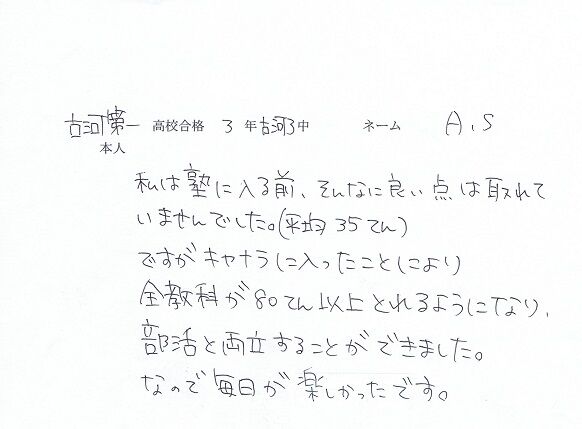 古河第一 高校合格 3 年 古河3中 ネーム A.S
本人
私は塾に入る前、そんなに良い点は取れて
いませんでした。(平均35てん)
ですがキャナラに入ったことにより
全教科が80てん以上とれるようになり、
部活と両立することができました。
なので毎日が楽しかったです。